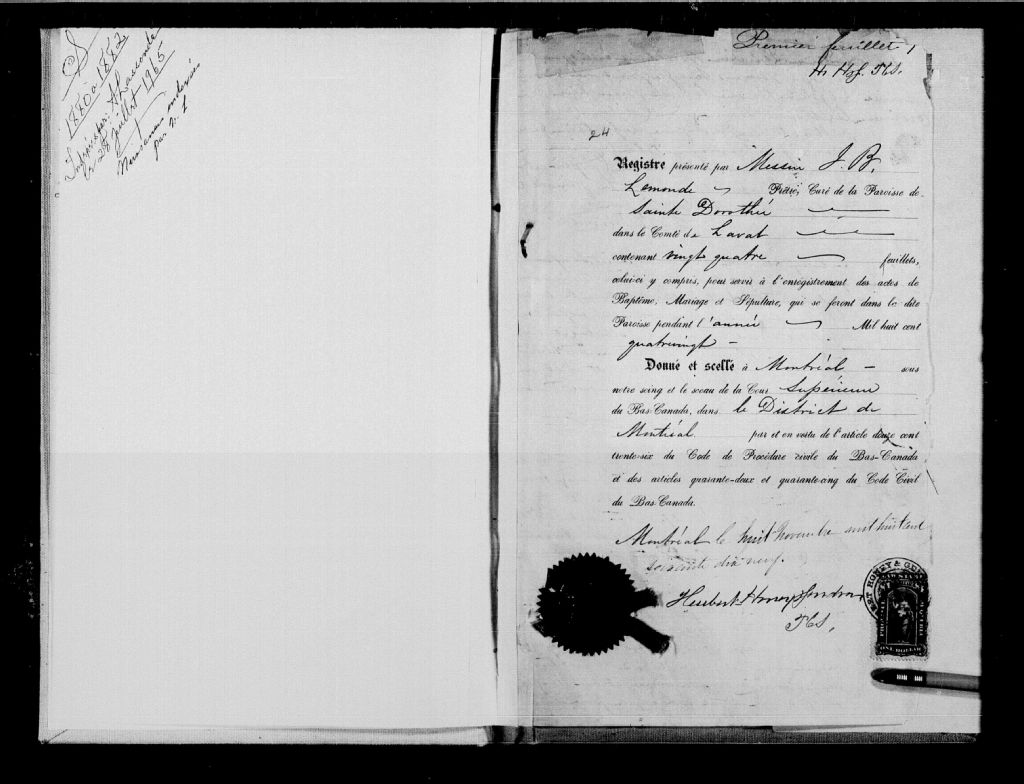 S
1880 a 1882
28 Juillet 1965
par
Premier feuillet 1
H. H&G. PCS.
24
Registre présenté par Messire J. B.
Lemonde Prêtre, Curé de la Paroisse de
Sainte Dorothée
dans le Comté de Laval
contenant vingt quatre feuillets,
celui-ci y compris, pour servir à l'enrégistrement des actes de
Baptême, Mariage et Sépulture, qui se feront dans la dite
Paroisse pendant l'année Mil huit cent
quatrevingt -
Donné et scellé à Montréal - sous
notre seing et le sceau de la Cour Supérieure
du Bas-Canada, dans le District de
Montréal par et en vertu de l'article douze cent
trente-six du Code de Procédure civile du Bas-Canada
et des articles quarante-deux et quarante-cinq du Code Civil
du Bas-Canada.
Montréal le huit Novembre mil huit cent
soixante dix neuf.
Hubert Honey & Gendron
PCS,
HONEY & GEN
LAW STAMP
ONE DOLLAR